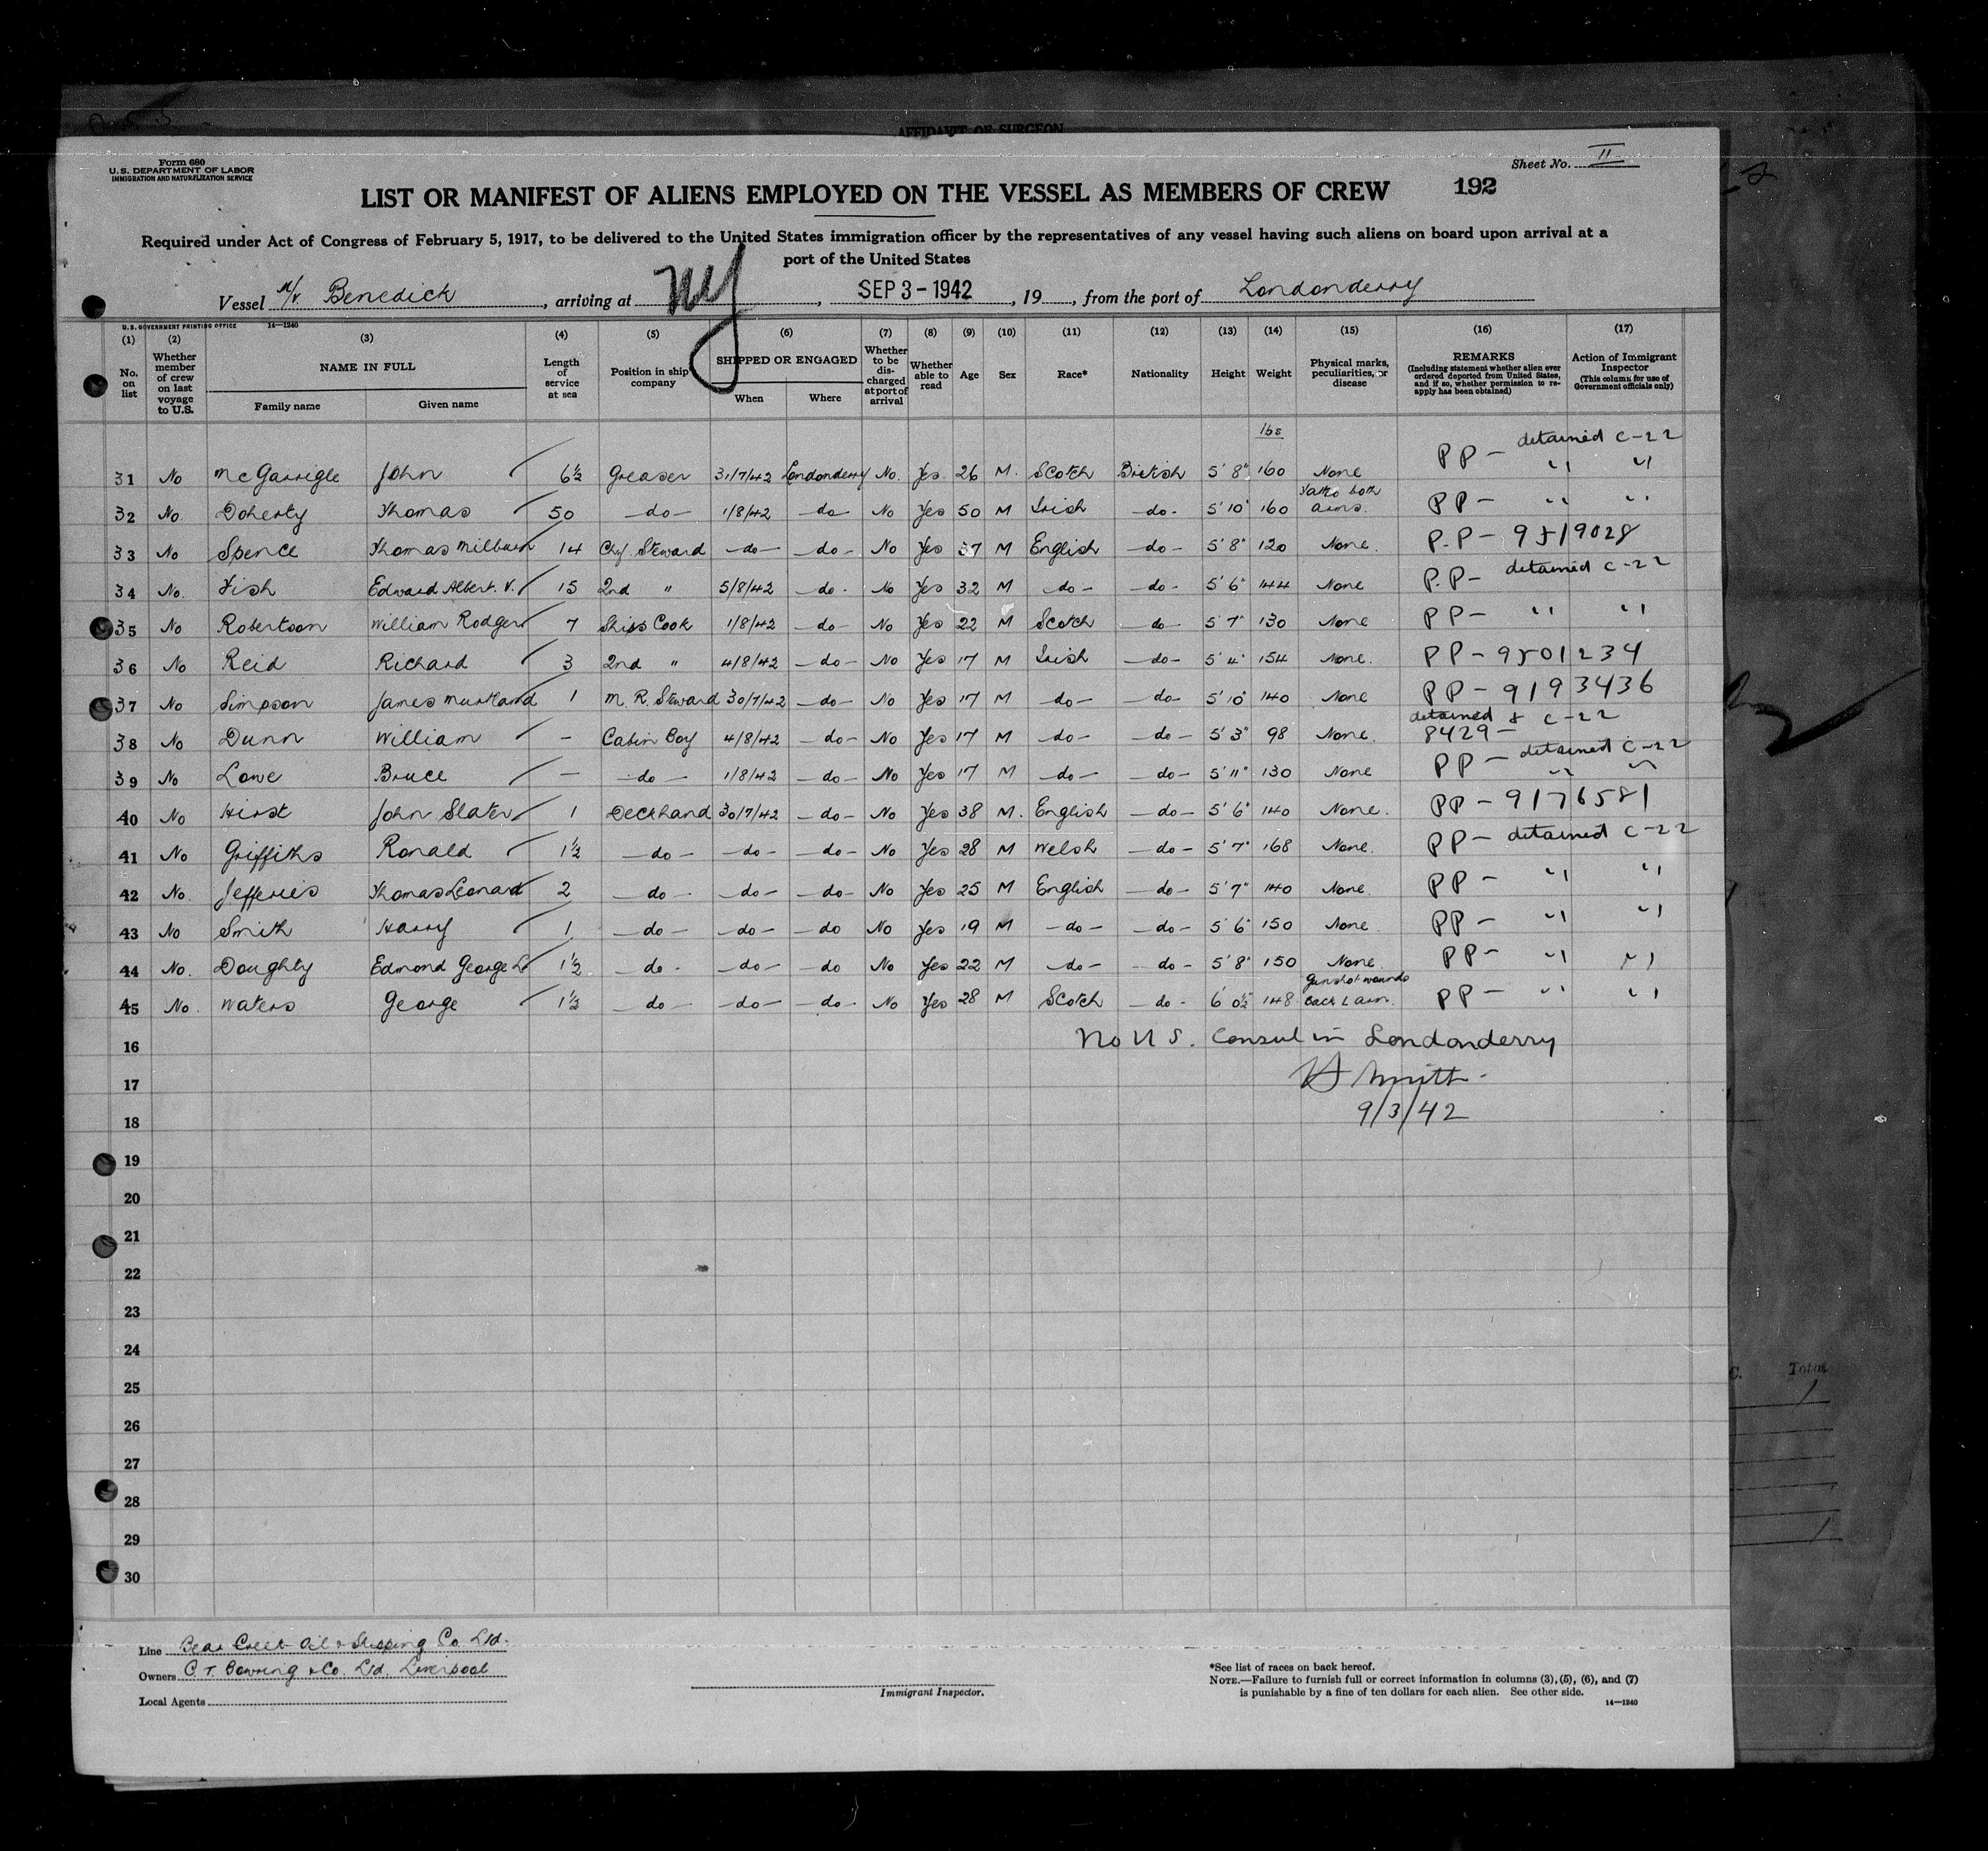 AFFIDAVIT OF SURGEON
Form 680
U.S. DEPARTMENT OF LABOR
IMMIGRATION AND NATURALIZATION SERVICE
Sheet No. II
LIST OR MANIFEST OF ALIENS EMPLOYED ON THE VESSEL AS MEMBERS OF CREW 192
Required under Act of Congress of February 5, 1917, to be delivered to the United States immigration officer by the representatives of any vessel having such aliens on board upon arrival at a
port of the United States
Vessel M/V. Benedick, arriving at NY, SEP 3 - 1942, 19, from the port of Londonderry
U.S. GOVERNMENT PRINTING OFFICE 14—1240
(1) No. on list
(2) Whether member of crew on last voyage to U.S.
(3) NAME IN FULL Family name Given name
(4) Length of service at sea
(5) Position in ship company
(6) SHIPPED OR ENGAGED When Where
(7) Whether to be discharged at port of arrival
(8) Whether able to read
(9) Age
(10) Sex
(11) Race*
(12) Nationality
(13) Height
(14) Weight
(15) Physical marks, peculiarities, or disease
(16) REMARKS (Including statement whether alien ever ordered deported from United States, and if so, whether permission to re-apply has been obtained)
(17) Action of Immigrant Inspector (This column for use of Government officials only)
lbs
31 No McGarrigle John 6½ Greaser 31/7/42 Londonderry No. Yes. 26 M. Scotch British 5' 8" 160 None PP - detained C-22 " "
32 No. Doherty Thomas 50 -do- 1/8/42 -do- No Yes 50 M Irish -do- 5' 10" 160 Tatto both arms. PP - " "
33 No Spence Thomas Milburn 14 Chf. Steward -do- -do- No Yes 37 M English -do- 5' 8" 120 None. P.P - 9519028
34 No. Fish Edward Albert. V. 15 2nd " 5/8/42 -do- No Yes 32 M -do- -do- 5' 6" 144 None P.P - detained C-22
35 No Robertson William Rodger 7 Ships Cook 1/8/42 -do- No Yes 22 M Scotch -do- 5' 7" 130 None PP - " "
36 No Reid Richard 3 2nd " 4/8/42 -do- No Yes 17 M Irish -do- 5' 4" 154 None. PP - 9501234
37 No Simpson James 1 M. R. Steward 30/7/42 -do- No Yes 17 M -do- -do- 5' 10" 140 None PP - 9193436
38 No Dunn William - Cabin Boy 4/8/42 -do- No Yes 17 M -do- -do- 5' 3" 98 None. detained & C-22 8429 -
39 No Lowe Bruce - -do- 1/8/42 -do- No Yes 17 M -do- -do- 5' 11" 130 None PP - detained C-22 " "
40 No Hirst John Slater 1 Deckhand 30/7/42 -do- No Yes 38 M. English -do- 5' 6" 140 None. PP - 9176581
41 No Griffiths Ronald 1½ -do- -do- -do- No Yes 28 M Welsh -do- 5' 7" 168 None. PP - detained C-22
42 No. Jefferies Thomas Leonard 2 -do- -do- -do- No Yes 25 M English -do- 5' 7" 140 None. PP - " "
43 No Smith Harry 1 -do- -do- -do No Yes 19 M -do- -do- 5' 6" 150 None PP - " "
44 No. Doughty Edmond George L. 1½ -do- -do- -do No Yes 22 M -do- -do- 5' 8" 150 None. PP - " "
45 No. Waters George 1½ -do -do- -do- No Yes 28 M Scotch -do- 6' 0½" 148 Gunshot wounds back L arm. PP - " "
16 No U S. Consul in Londonderry
17 Smith
18 9/3/42
19
20
21
22
23
24
25
26
27
28
29
30
Line Bear Creek Oil & Shipping Co. Ltd.
Owners C. T. Bowring & Co. Ltd. Liverpool
Local Agents
Immigrant Inspector.
*See list of races on back hereof.
NOTE.—Failure to furnish full or correct information in columns (3), (5), (6), and (7)
is punishable by a fine of ten dollars for each alien. See other side.
14—1240
Total